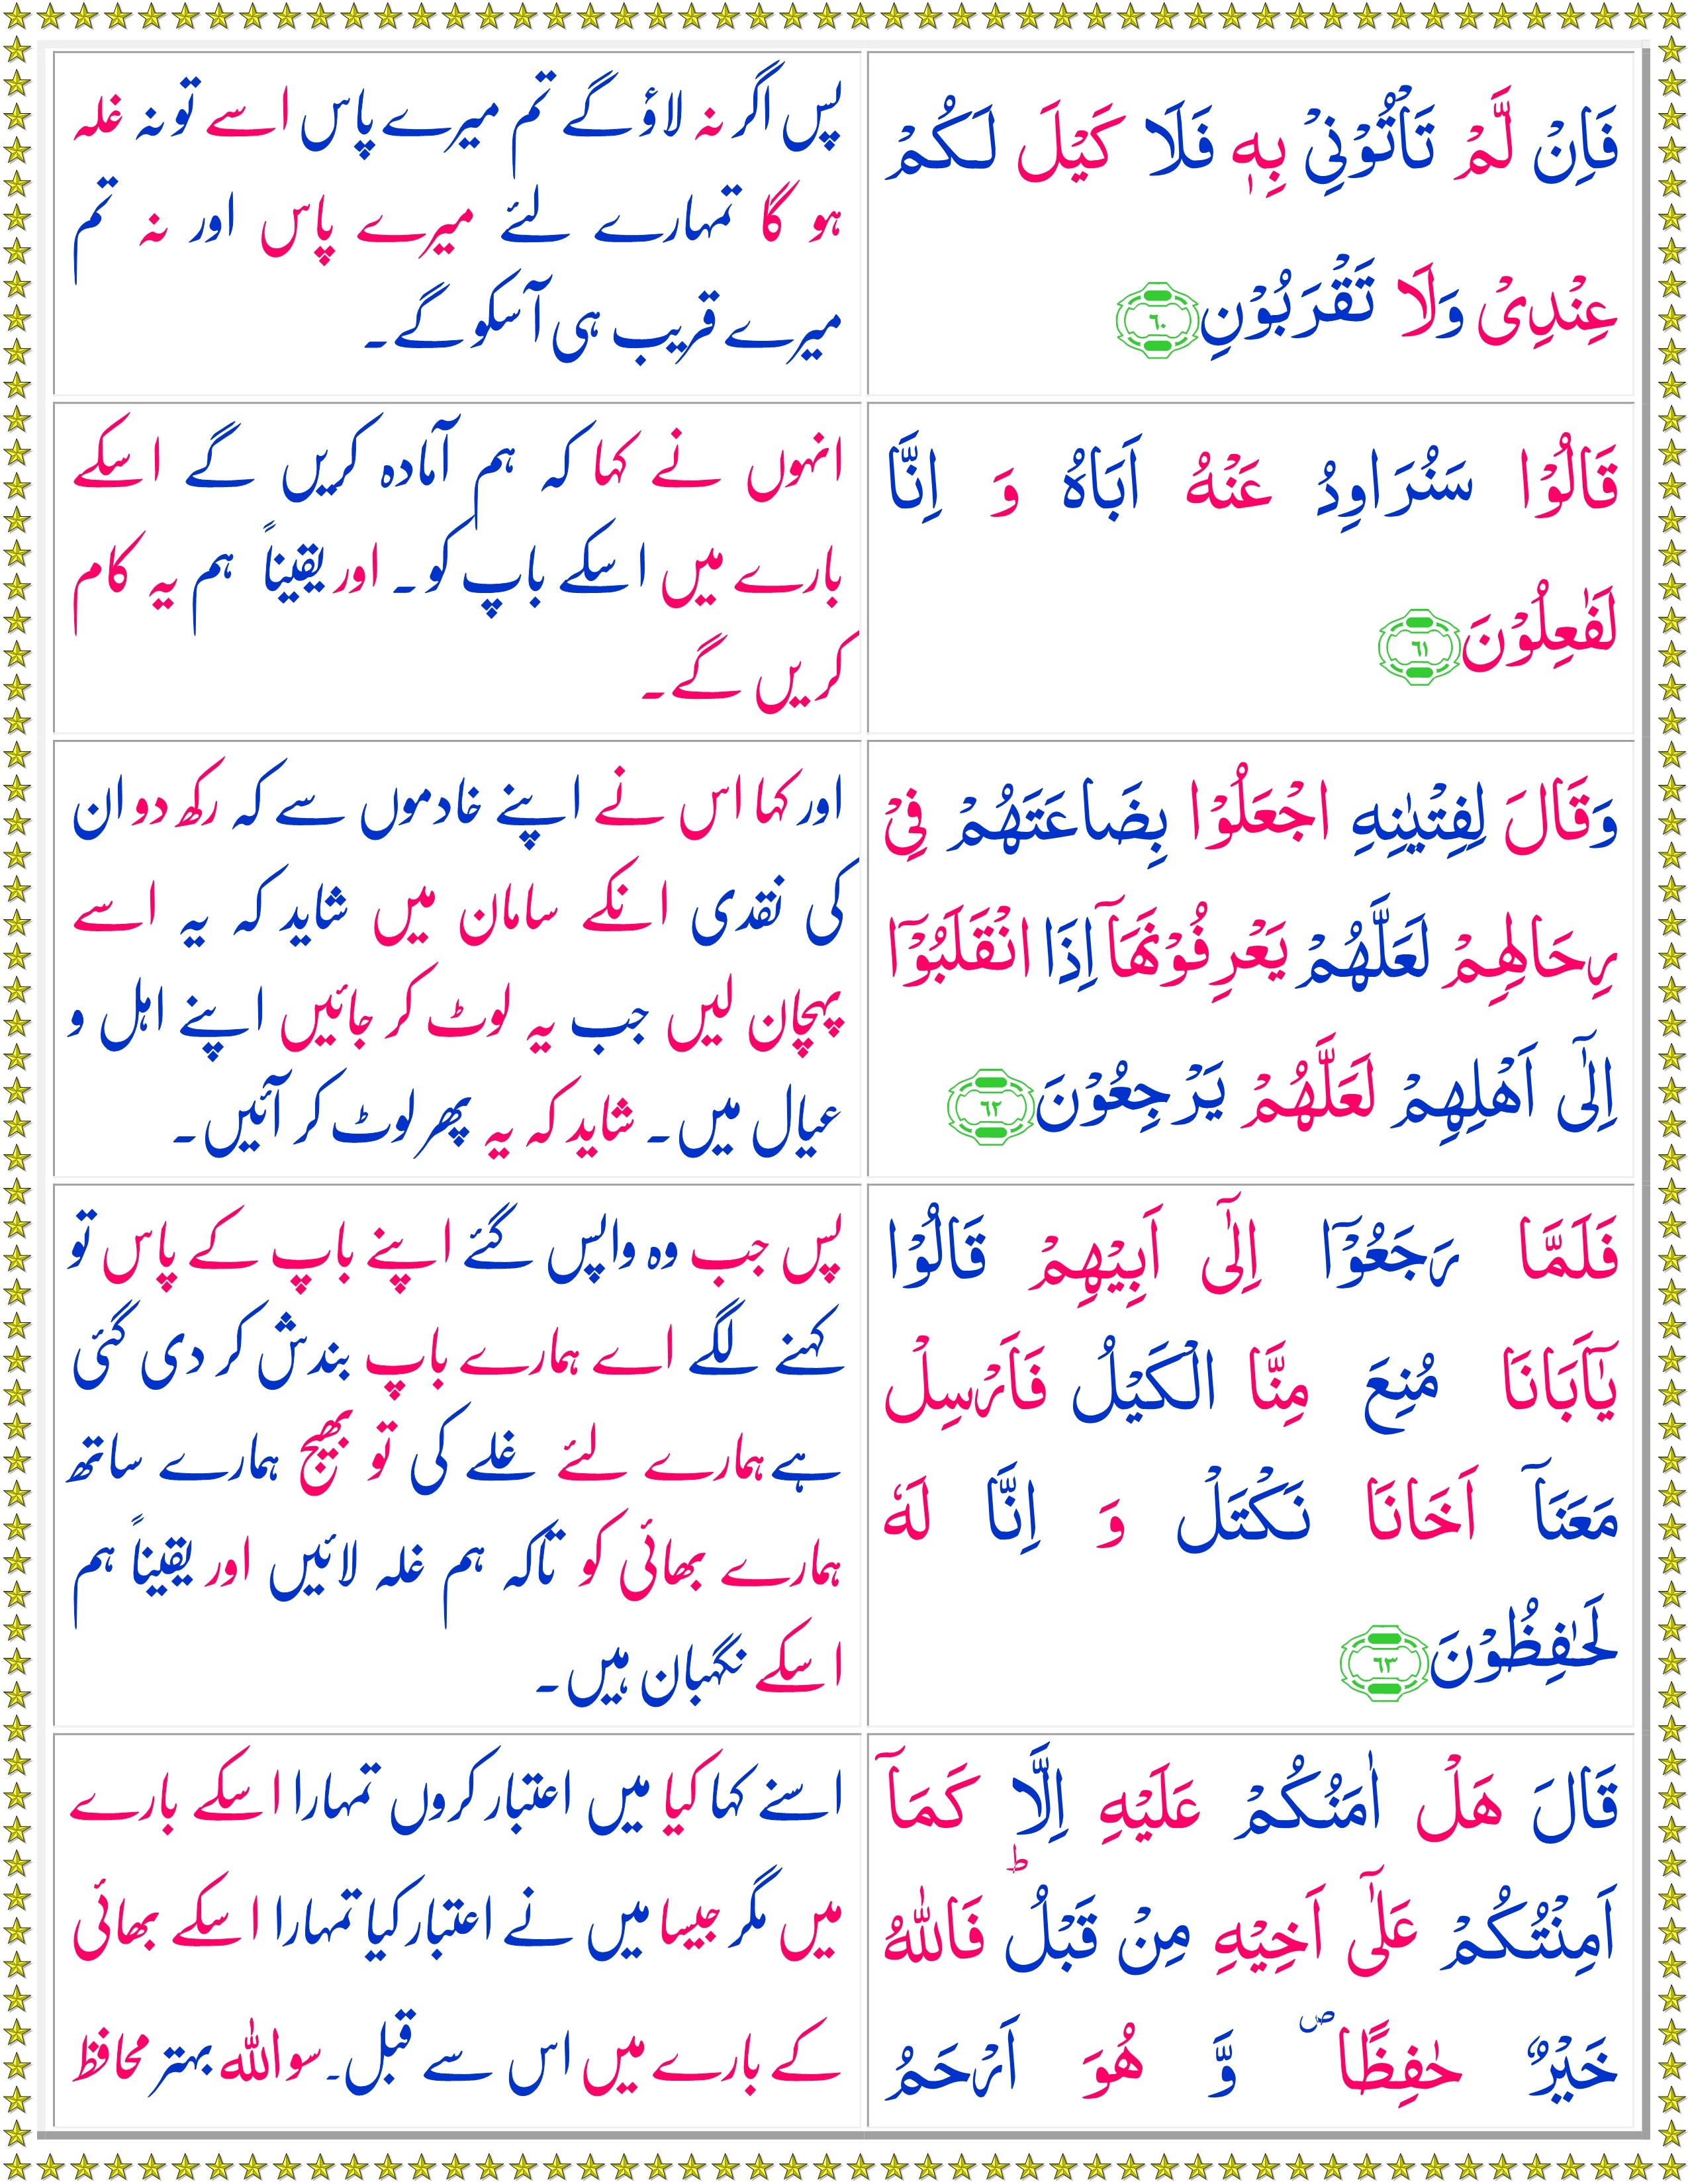 فَاِنْ لَّمْ تَاْتُوْنِیْ بِهٖ فَلَا كَیْلَ لَـكُمْ
عِنْدِیْ وَلَا تَقْرَبُوْنِ ﴿۶۰﴾
پس اگر نہ لاؤ گے تم میرے پاس اسے تو نہ غلہ
ہو گا تمہارے لئے میرے پاس اور نہ تم
میرے قریب ہی آسکو گے۔
قَالُوْا سَنُرَاوِدُ عَنْهُ اَبَاهُ وَ اِنَّا
لَفٰعِلُوْنَ ﴿۶۱﴾
انہوں نے کہا کہ ہم آمادہ کریں گے اسکے
بارے میں اسکے باپ کو۔ اور یقیناً ہم یہ کام
کریں گے۔
وَقَالَ لِفِتْیٰنِهِ اجْعَلُوْا بِضَاعَتَهُمْ فِیْ
رِحَالِهِمْ لَعَلَّهُمْ یَعْرِفُوْنَهَاۤ اِذَا انْقَلَبُوْۤا
اِلٰٓی اَهْلِهِمْ لَعَلَّهُمْ یَرْجِعُوْنَ ﴿۶۲﴾
اور کہا اس نے اپنے خادموں سے کہ رکھ دو ان
کی نقدی انکے سامان میں شاید کہ یہ اسے
پہچان لیں جب یہ لوٹ کر جائیں اپنے اہل و
عیال میں۔ شاید کہ یہ پھر لوٹ کر آئیں۔
فَلَمَّا رَجَعُوْۤا اِلٰٓی اَبِیْهِمْ قَالُوْا
یٰۤاَبَانَا مُنِعَ مِنَّا الْكَیْلُ فَاَرْسِلْ
مَعَنَاۤ اَخَانَا نَكْتَلْ وَ اِنَّا لَهٗ
لَحٰفِظُوْنَ ﴿۶۳﴾
پس جب وہ واپس گئے اپنے باپ کے پاس تو
کہنے لگے اے ہمارے باپ بندش کر دی گئی
ہے ہمارے لئے غلے کی تو بھیج ہمارے ساتھ
ہمارے بھائی کو تاکہ ہم غلہ لائیں اور یقیناً ہم
اسکے نگہبان ہیں۔
قَالَ هَلْ اٰمَنُكُمْ عَلَیْهِ اِلَّا كَمَاۤ
اَمِنْتُكُمْ عَلٰٓی اَخِیْهِ مِنْ قَبْلُؕ فَاللّٰهُ
خَیْرٌ حٰفِظًا۪ وَّ هُوَ اَرْحَمُ
اسنے کہا کیا میں اعتبار کروں تمہارا اسکے بارے
میں مگر جیسا میں نے اعتبار کیا تمہارا اسکے بھائی
کے بارے میں اس سے قبل۔ سو اللہ بہتر محافظ